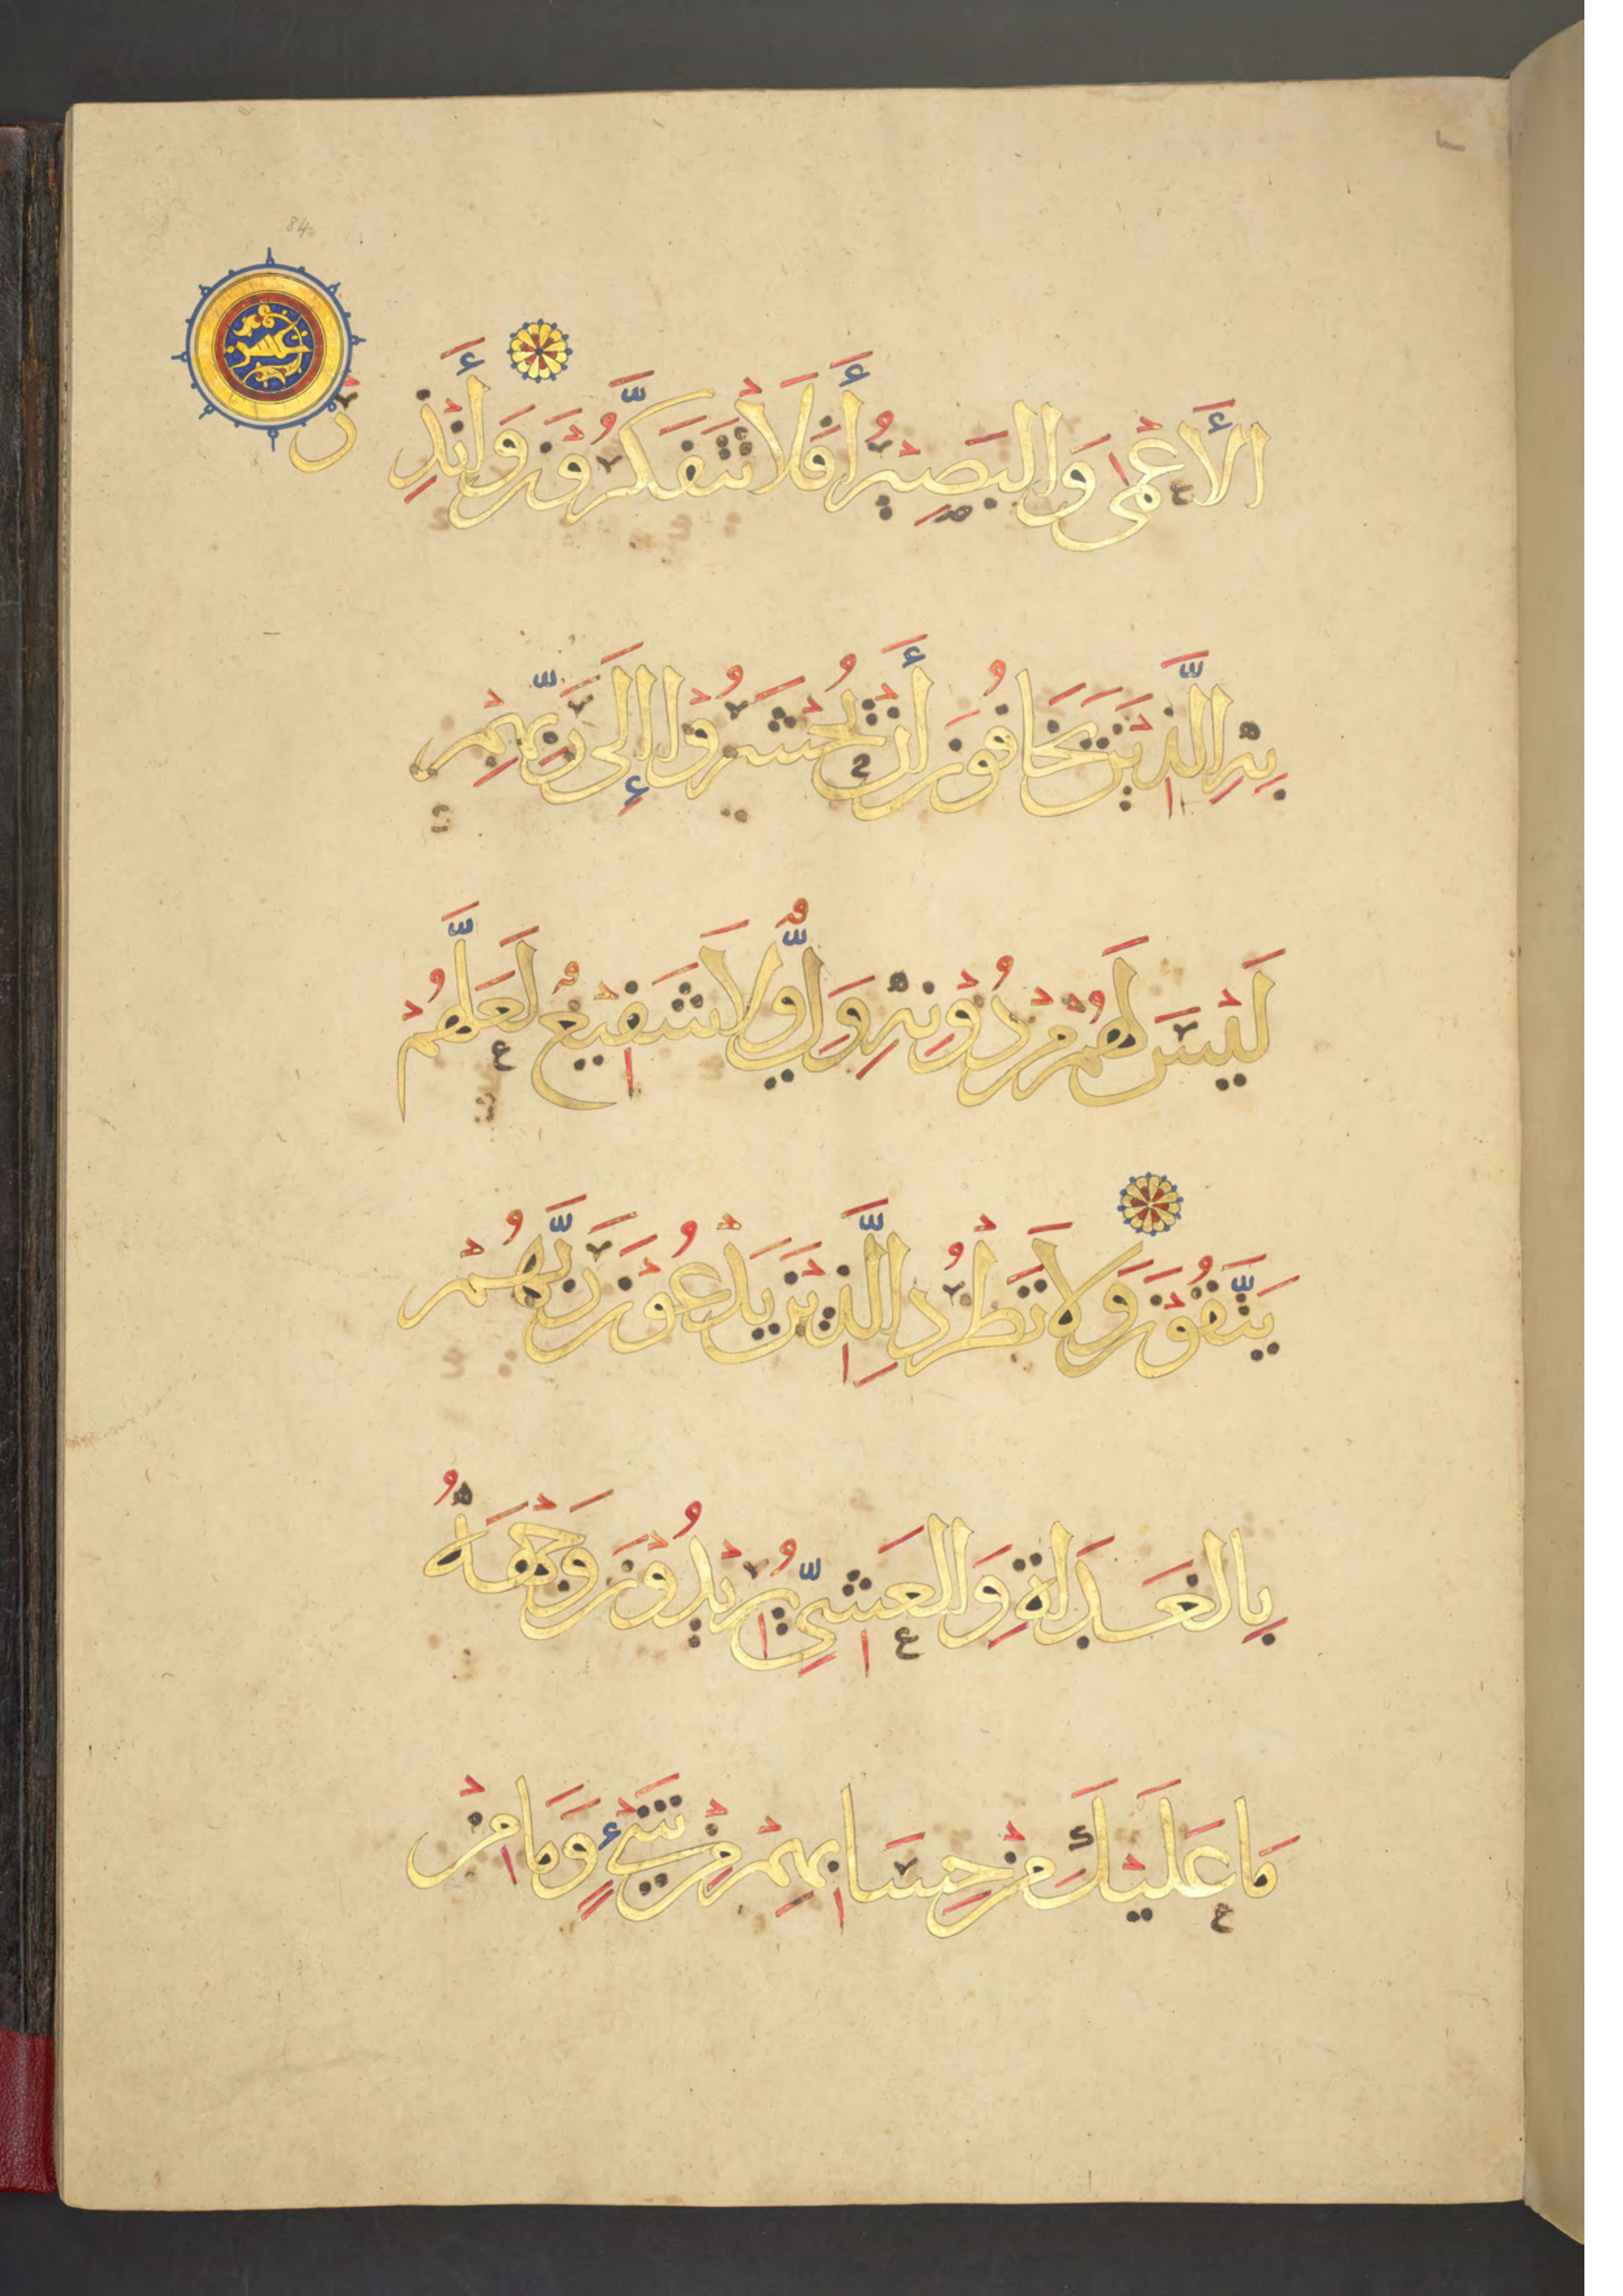 84
الأَعْمَى وَالبَصِيْرُ أَفَلَا تَتَفَكَّرُوْنَ وَأَنْذِرْ
بِهِ الَّذِيْنَ يَخَافُوْنَ أَنْ يُحْشَرُوْا إِلَى رَبِّهِمْ
لَيْسَ لَهُمْ مِنْ دُوْنِهِ وَلِيٌّ وَلَا شَفِيْعٌ لَعَلَّهُمْ
يَتَّقُوْنَ وَلَا تَطْرُدِ الَّذِيْنَ يَدْعُوْنَ رَبَّهُمْ
بِالغَدَاةِ وَالعَشِيِّ يُرِيْدُوْنَ وَجْهَهُ
مَا عَلَيْكَ مِنْ حِسَابِهِمْ مِنْ شَيْءٍ وَمَا مِنْ